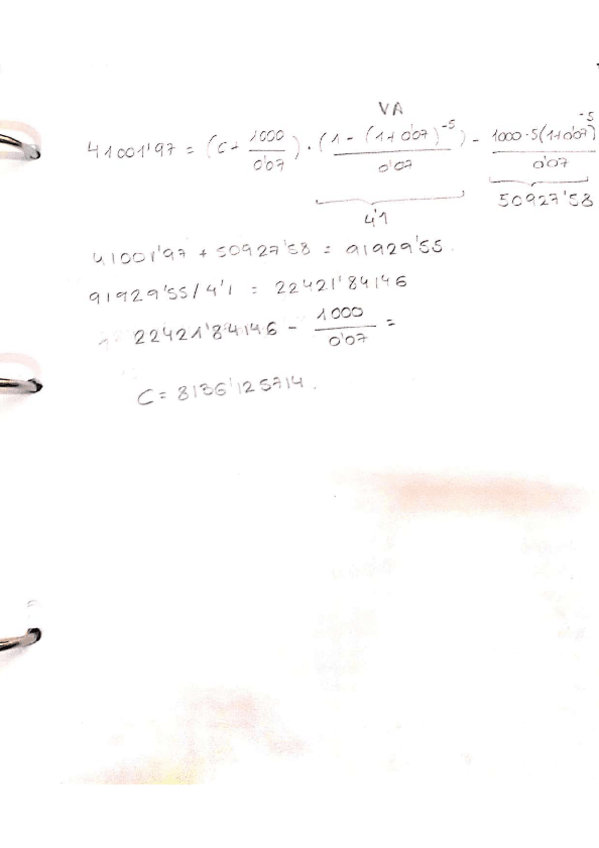 VA
41001'97 = (C + 1000/0'07) · (1 - (1+0'07)^-5 / 0'07) - 1000·5(1+0'07)^-5 / 0'07
4'1
50927'58
41001'97 + 50927'58 = 91929'55.
91929'55/4'1 = 22421'84146
22421'84146 - 1000/0'07 =
C = 8136'125714.